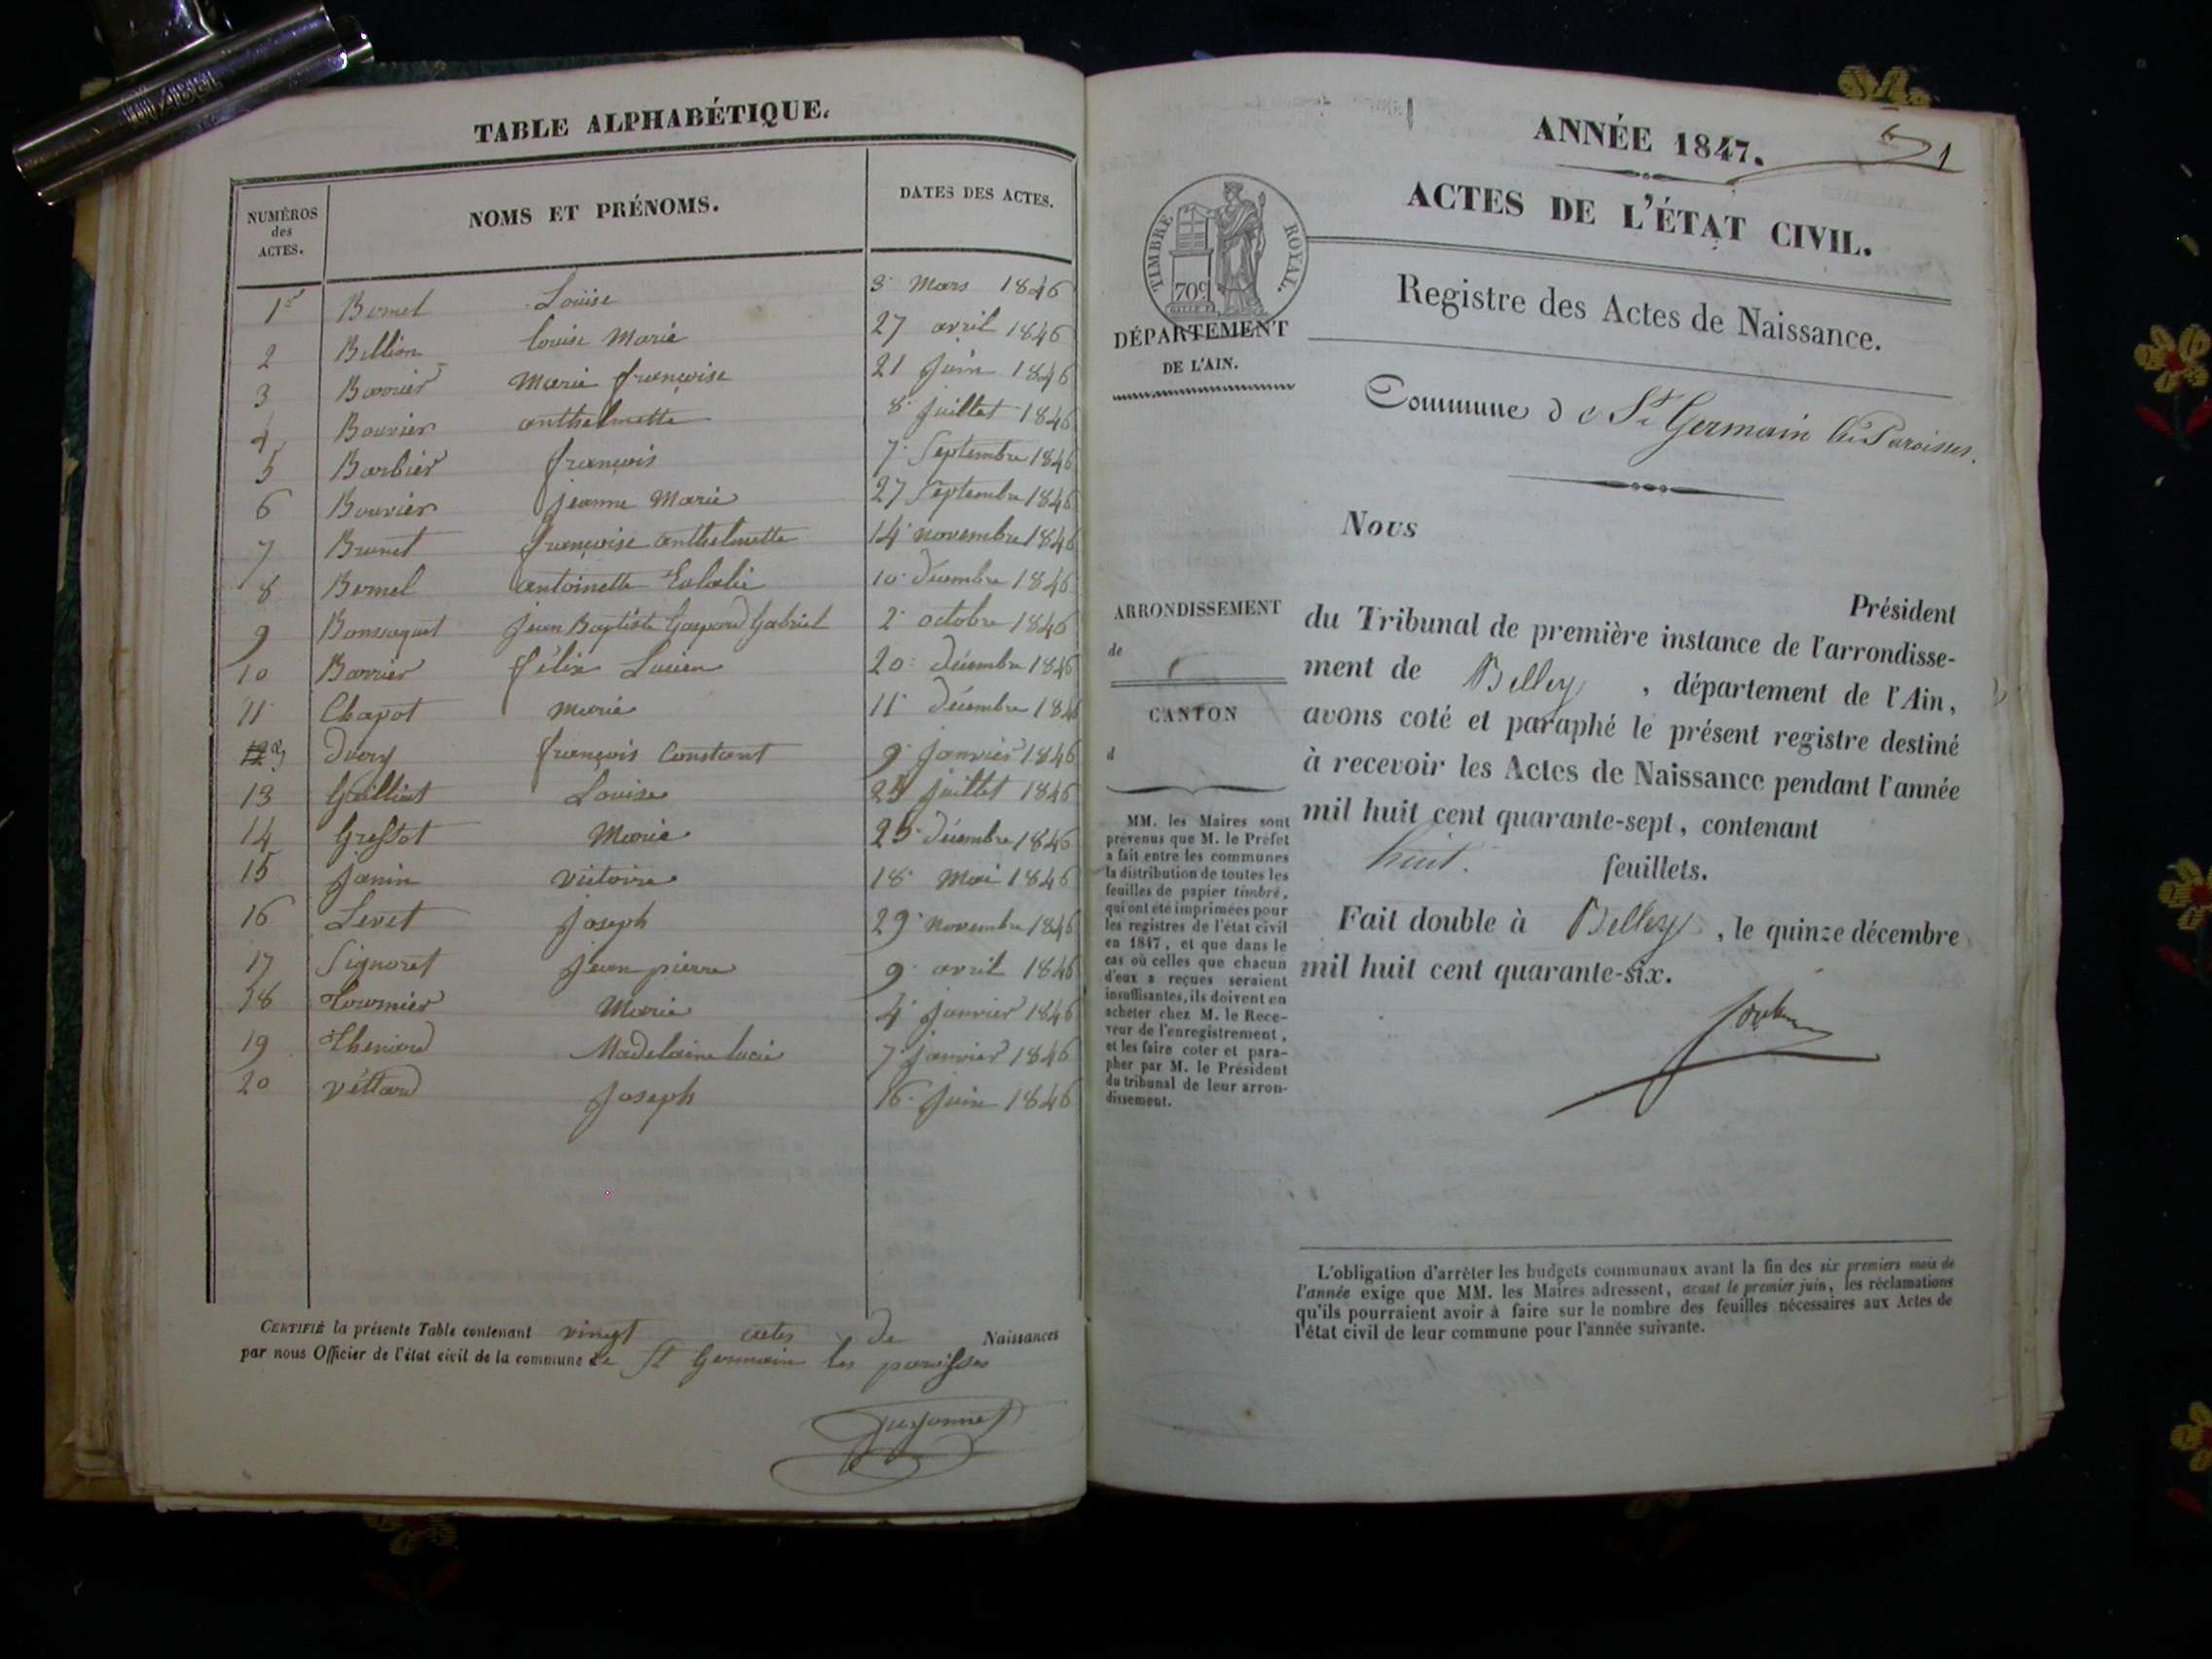 TABLE ALPHABÉTIQUE.
NUMÉROS des ACTES. NOMS ET PRÉNOMS. DATES DES ACTES.
1er Bornel Louise 3 Mars 1846
2 Billion louise Marie 27 avril 1846
3 Barrier Marie françoise 21 Juin 1846
4 Bouvier anthelmette 8 juillet 1846
5 Barbier françois 7 Septembre 1846
6 Bouvier jeanne Marie 27 Septembre 1846
7 Brunet françoise anthelmette 14 novembre 1846
8 Bornel antoinette Eulalie 10 décembre 1846
9 jean Baptiste Gaspard Gabriel 2 octobre 1846
10 Barrier félix Lucien 20 décembre 1846
11 Chapot marie 11 décembre 1846
françois Constant 9 janvier 1846
13 Louise juillet 1846
14 Marie 25 décembre 1846
15 Janin victoire 18 Mai 1846
16 Levet joseph 29 novembre 1846
17 Signoret Jean pierre 9 avril 1846
18 Tournier Marie 4 janvier 1846
19 Thenard Madelaine lucie 7 janvier 1846
20 véttard Joseph 16 Juin 1846
CERTIFIÉ la présente Table contenant vingt actes de Naissances
par nous Officier de l'état civil de la commune de St Germain les paroisses
ANNÉE 1847.
1
ACTES DE L'ÉTAT CIVIL.
TIMBRE ROYAL.
70c
Registre des Actes de Naissance.
DÉPARTEMENT
DE L'AIN.
Commune de St Germain les Paroisses.
Nous
Président
ARRONDISSEMENT
de
CANTON
d
du Tribunal de première instance de l'arrondisse-
ment de Belley, département de l'Ain,
avons coté et paraphé le présent registre destiné
à recevoir les Actes de Naissance pendant l'année
mil huit cent quarante-sept, contenant
huit. feuillets.
Fait double à Belley, le quinze décembre
mil huit cent quarante-six.
MM. les Maires sont
prévenus que M. le Préfet
a fait entre les communes
la distribution de toutes les
feuilles de papier timbré,
qui ont été imprimées pour
les registres de l'état civil
en 1847, et que dans le
cas où celles que chacun
d'eux a reçues seraient
insuffisantes, ils doivent en
acheter chez M. le Rece-
veur de l'enregistrement,
et les faire coter et para-
pher par M. le Président
du tribunal de leur arron-
dissement.
L'obligation d'arrêter les budgets communaux avant la fin des six premiers mois de
l'année exige que MM. les Maires adressent, avant le premier juin, les réclamations
qu'ils pourraient avoir à faire sur le nombre des feuilles nécessaires aux Actes de
l'état civil de leur commune pour l'année suivante.